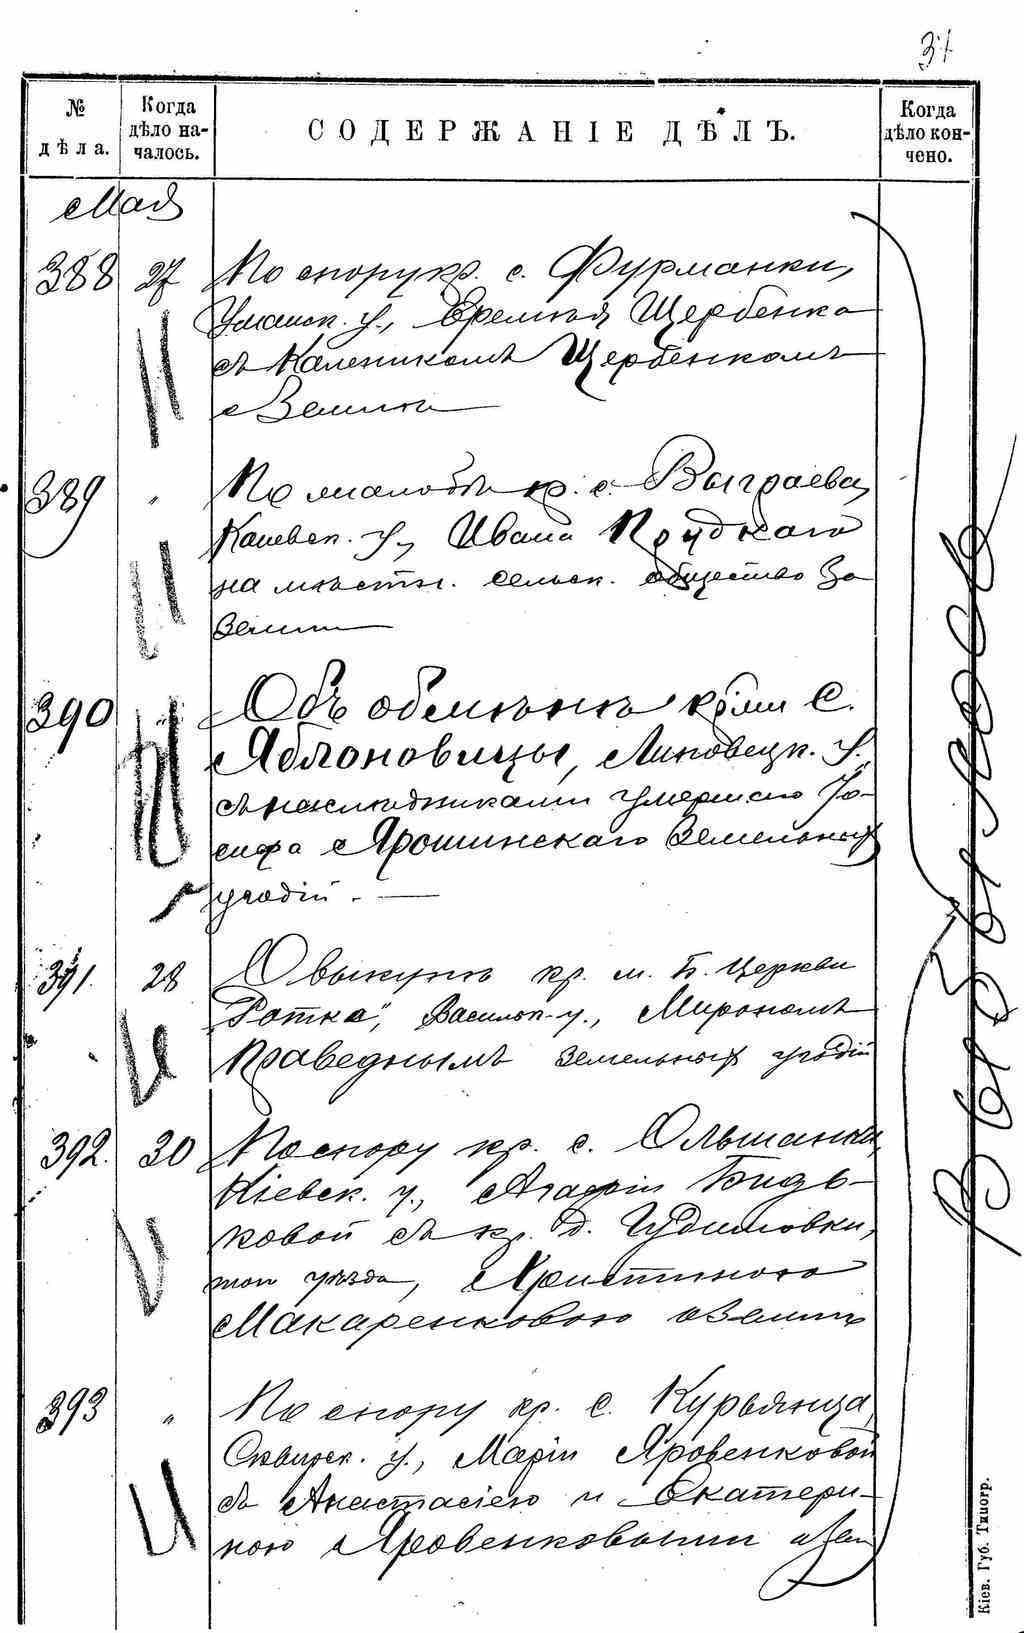 31
№ дѣла.
Когда дѣло на-чалось.
СОДЕРЖАНІЕ ДѢЛЪ.
Когда дѣло кон-чено.
Мая
388 27 По спору кр. с. Фурманки,
Уманск. у., Еремѣя Щербенка
съ Калеником Щербенкомъ
о Земли
389 „ По жалобѣ кр. с. Выграева,
Каневск. у., Ивана Прудкаго
на мѣстн. сельск. общество за
Земли
390 Объ обмѣнѣ кр‍ми с.
Яблоновицы, Липовецк. у.
съ наслѣдниками умершаго Іо-
сифа Ярошинскаго Земельных
угодій. —
391. 28 О выкупѣ кр. м. Б. Церкви
„Ротка", Васильк. у., Мирономъ
Праведнымъ земельных угодій
392. 30 По спору кр. с. Ольшанки,
Кіевск. у., Агафіи Бидь-
ковой съ кр. д. Чудиловки,
того уѣзда, Христиною
Макаренковою о Земли
393 „ По спору кр. с. Курьянца,
Сквирск. у., Маріи Яровенковой
съ Анастасіею и Екатери-
ною Яровенковыми о Зем
Кіев. Губ. Типогр.